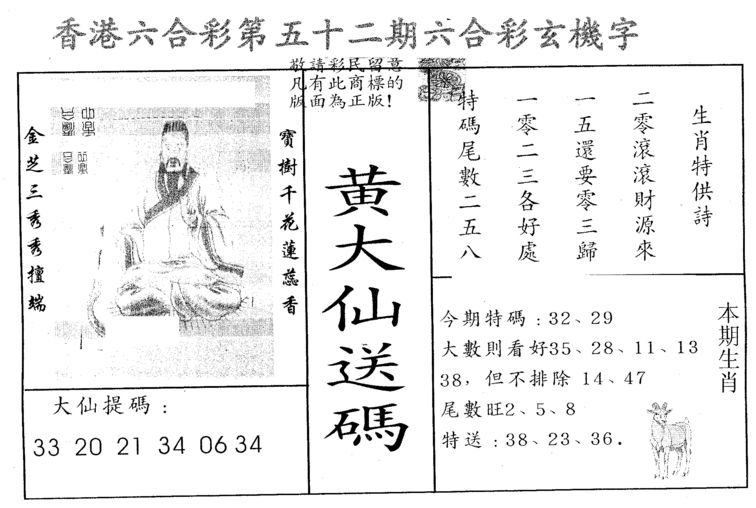 香港六合彩第五十二期六合彩玄機字
敬請彩民留意
凡有此商標的
版面為正版！
生肖特供詩
二零滾滾財源來
一五還要零三歸
一零二三各好處
特碼尾數二五八
黃大仙送碼
寶樹千花蓮蕊香
金芝三秀秀擅端
大仙提碼：
33 20 21 34 06 34
本期生肖
今期特碼：32、29
大數則看好35、28、11、13
38，但不排除 14、47
尾數旺2、5、8
特送：38、23、36．